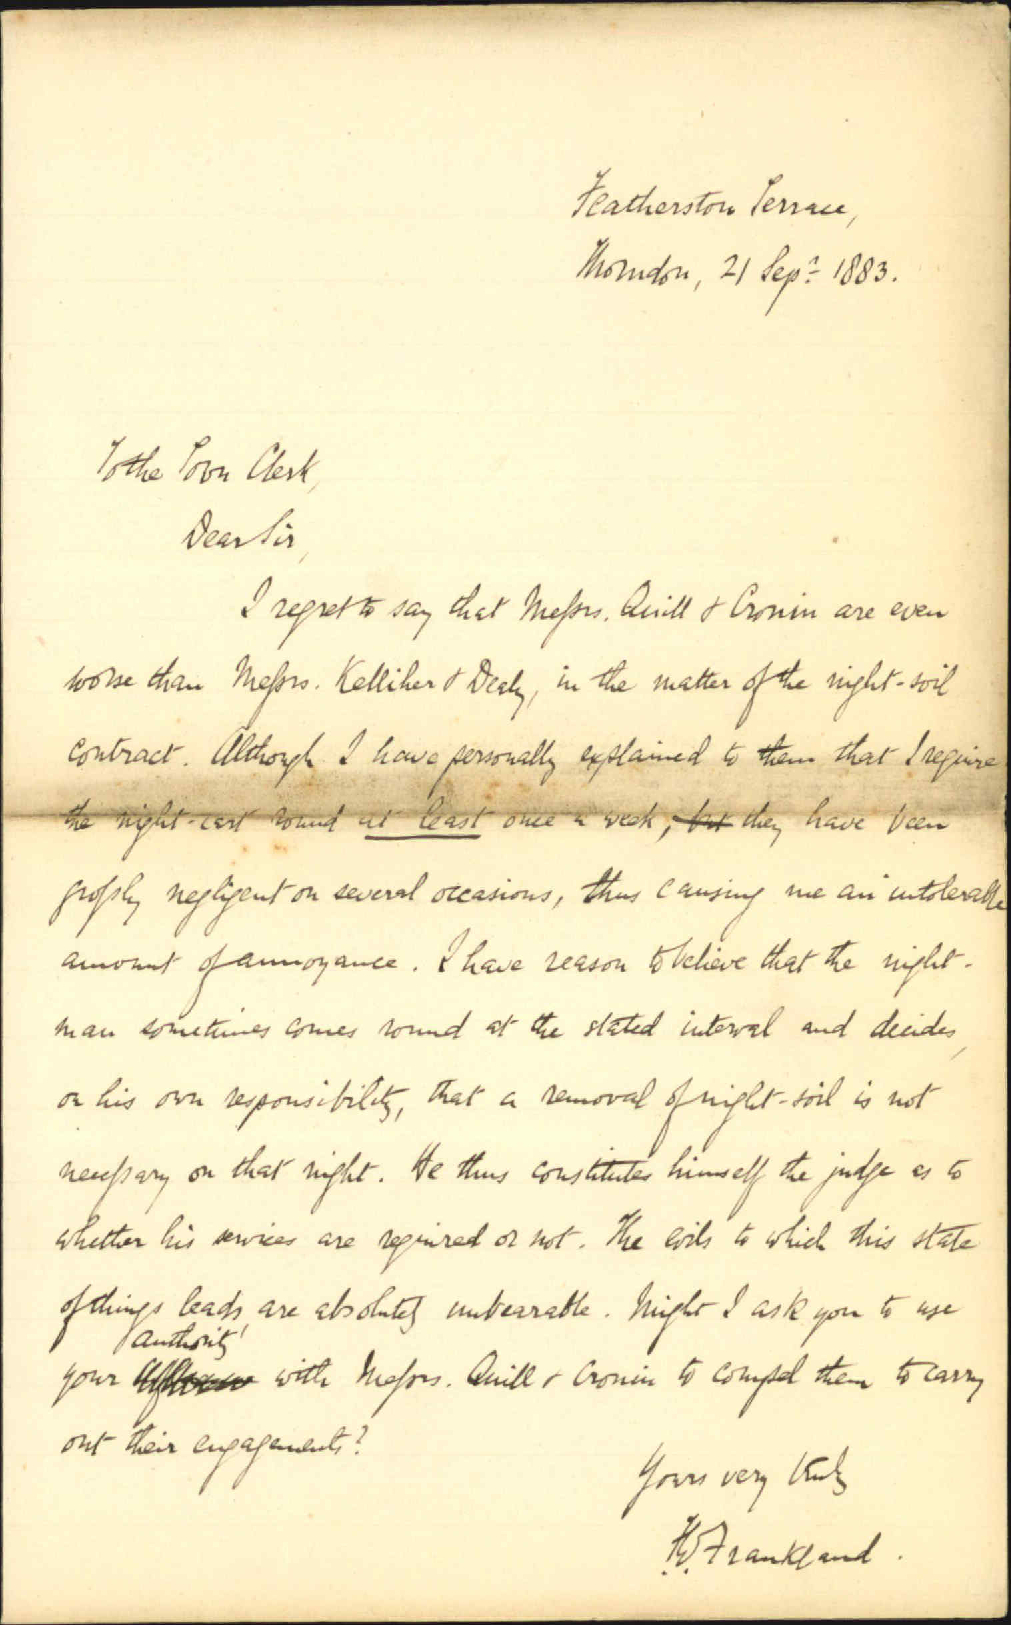 Featherston Terrace,
Thorndon, 21 Sepr. 1883.
To the Town Clerk,
Dear Sir,
I regret to say that Messrs. Quill & Cronin are even
worse than Messrs. Kelliher & Dealy, in the matter of the night-soil
contract. Although I have personally explained to them that I require
the night-cart round at least once a week, but they have been
grossly negligent on several occasions, thus causing me an intolerable
amount of annoyance. I have reason to believe that the night-
man sometimes comes round at the stated interval and decides,
on his own responsibility, that a removal of night-soil is not
necessary on that night. He thus constitutes himself the judge as to
whether his services are required or not. The evils to which this state
of things leads, are absolutely unbearable. Might I ask you to use
authority
your with Messrs. Quill & Cronin to compel them to carry
out their engagements?
Yours very truly
F.W. Frankland.